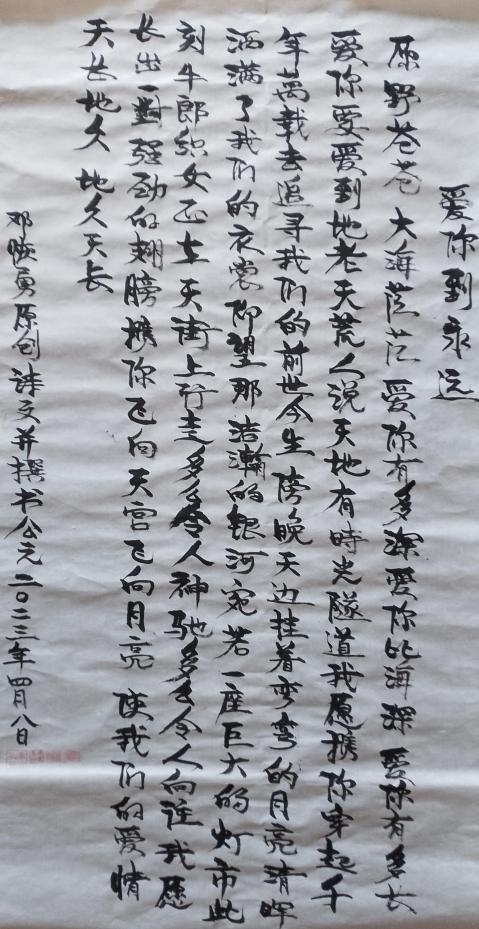 爱你到永远
原野苍苍 大海茫茫 爱你有多深 爱你比海深 爱你有多长
爱你要爱到地老天荒 人说天地有時光隧道 我愿携你穿起千
年萬载去追寻我们的前世今生 傍晚天边挂着弯弯的月亮 清晖
洒满了我们的衣裳 仰望那浩瀚的银河宛若一座巨大的灯市 此
刻牛郎织女正在天街上行走 多多令人神驰 多么令人向往 我愿
长出一對强劲的翅膀 携你飞向天宫 飞向月亮 使我们的爱情
天长地久 地久天长
邓 勇原创诗文并撰书 公元二〇二三年四月八日